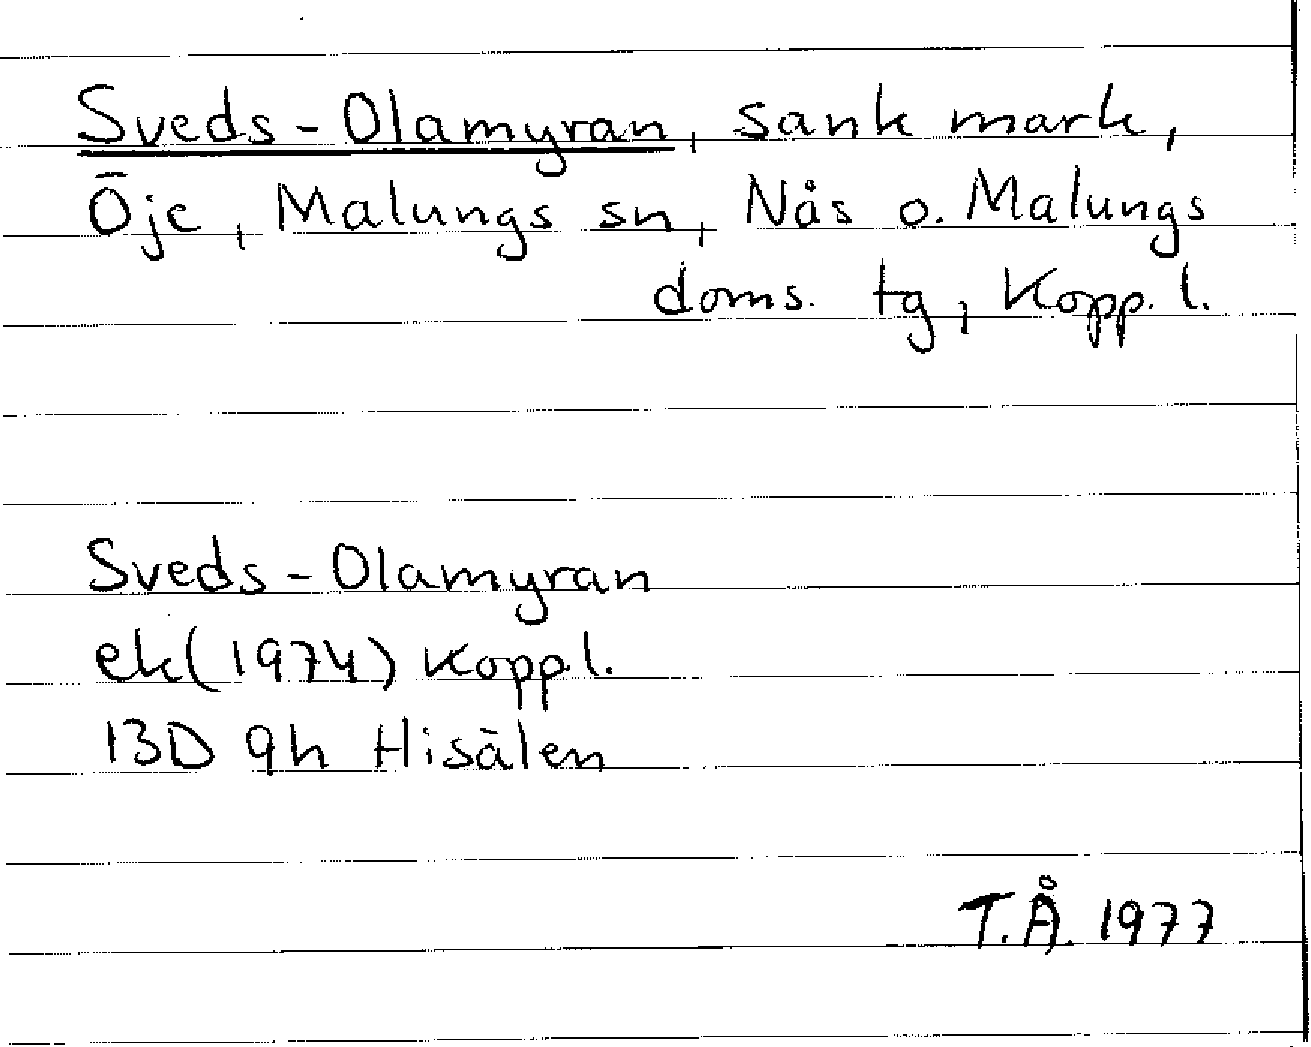 Sveds-Olamyran, sank mark,
Öje, Malungs sn, Nås o. Malungs
doms. tg, Kopp. l.
Sveds-Olamyran
ek(1974) Kopp l.
13D 9h Hisälen
T.Å. 1977